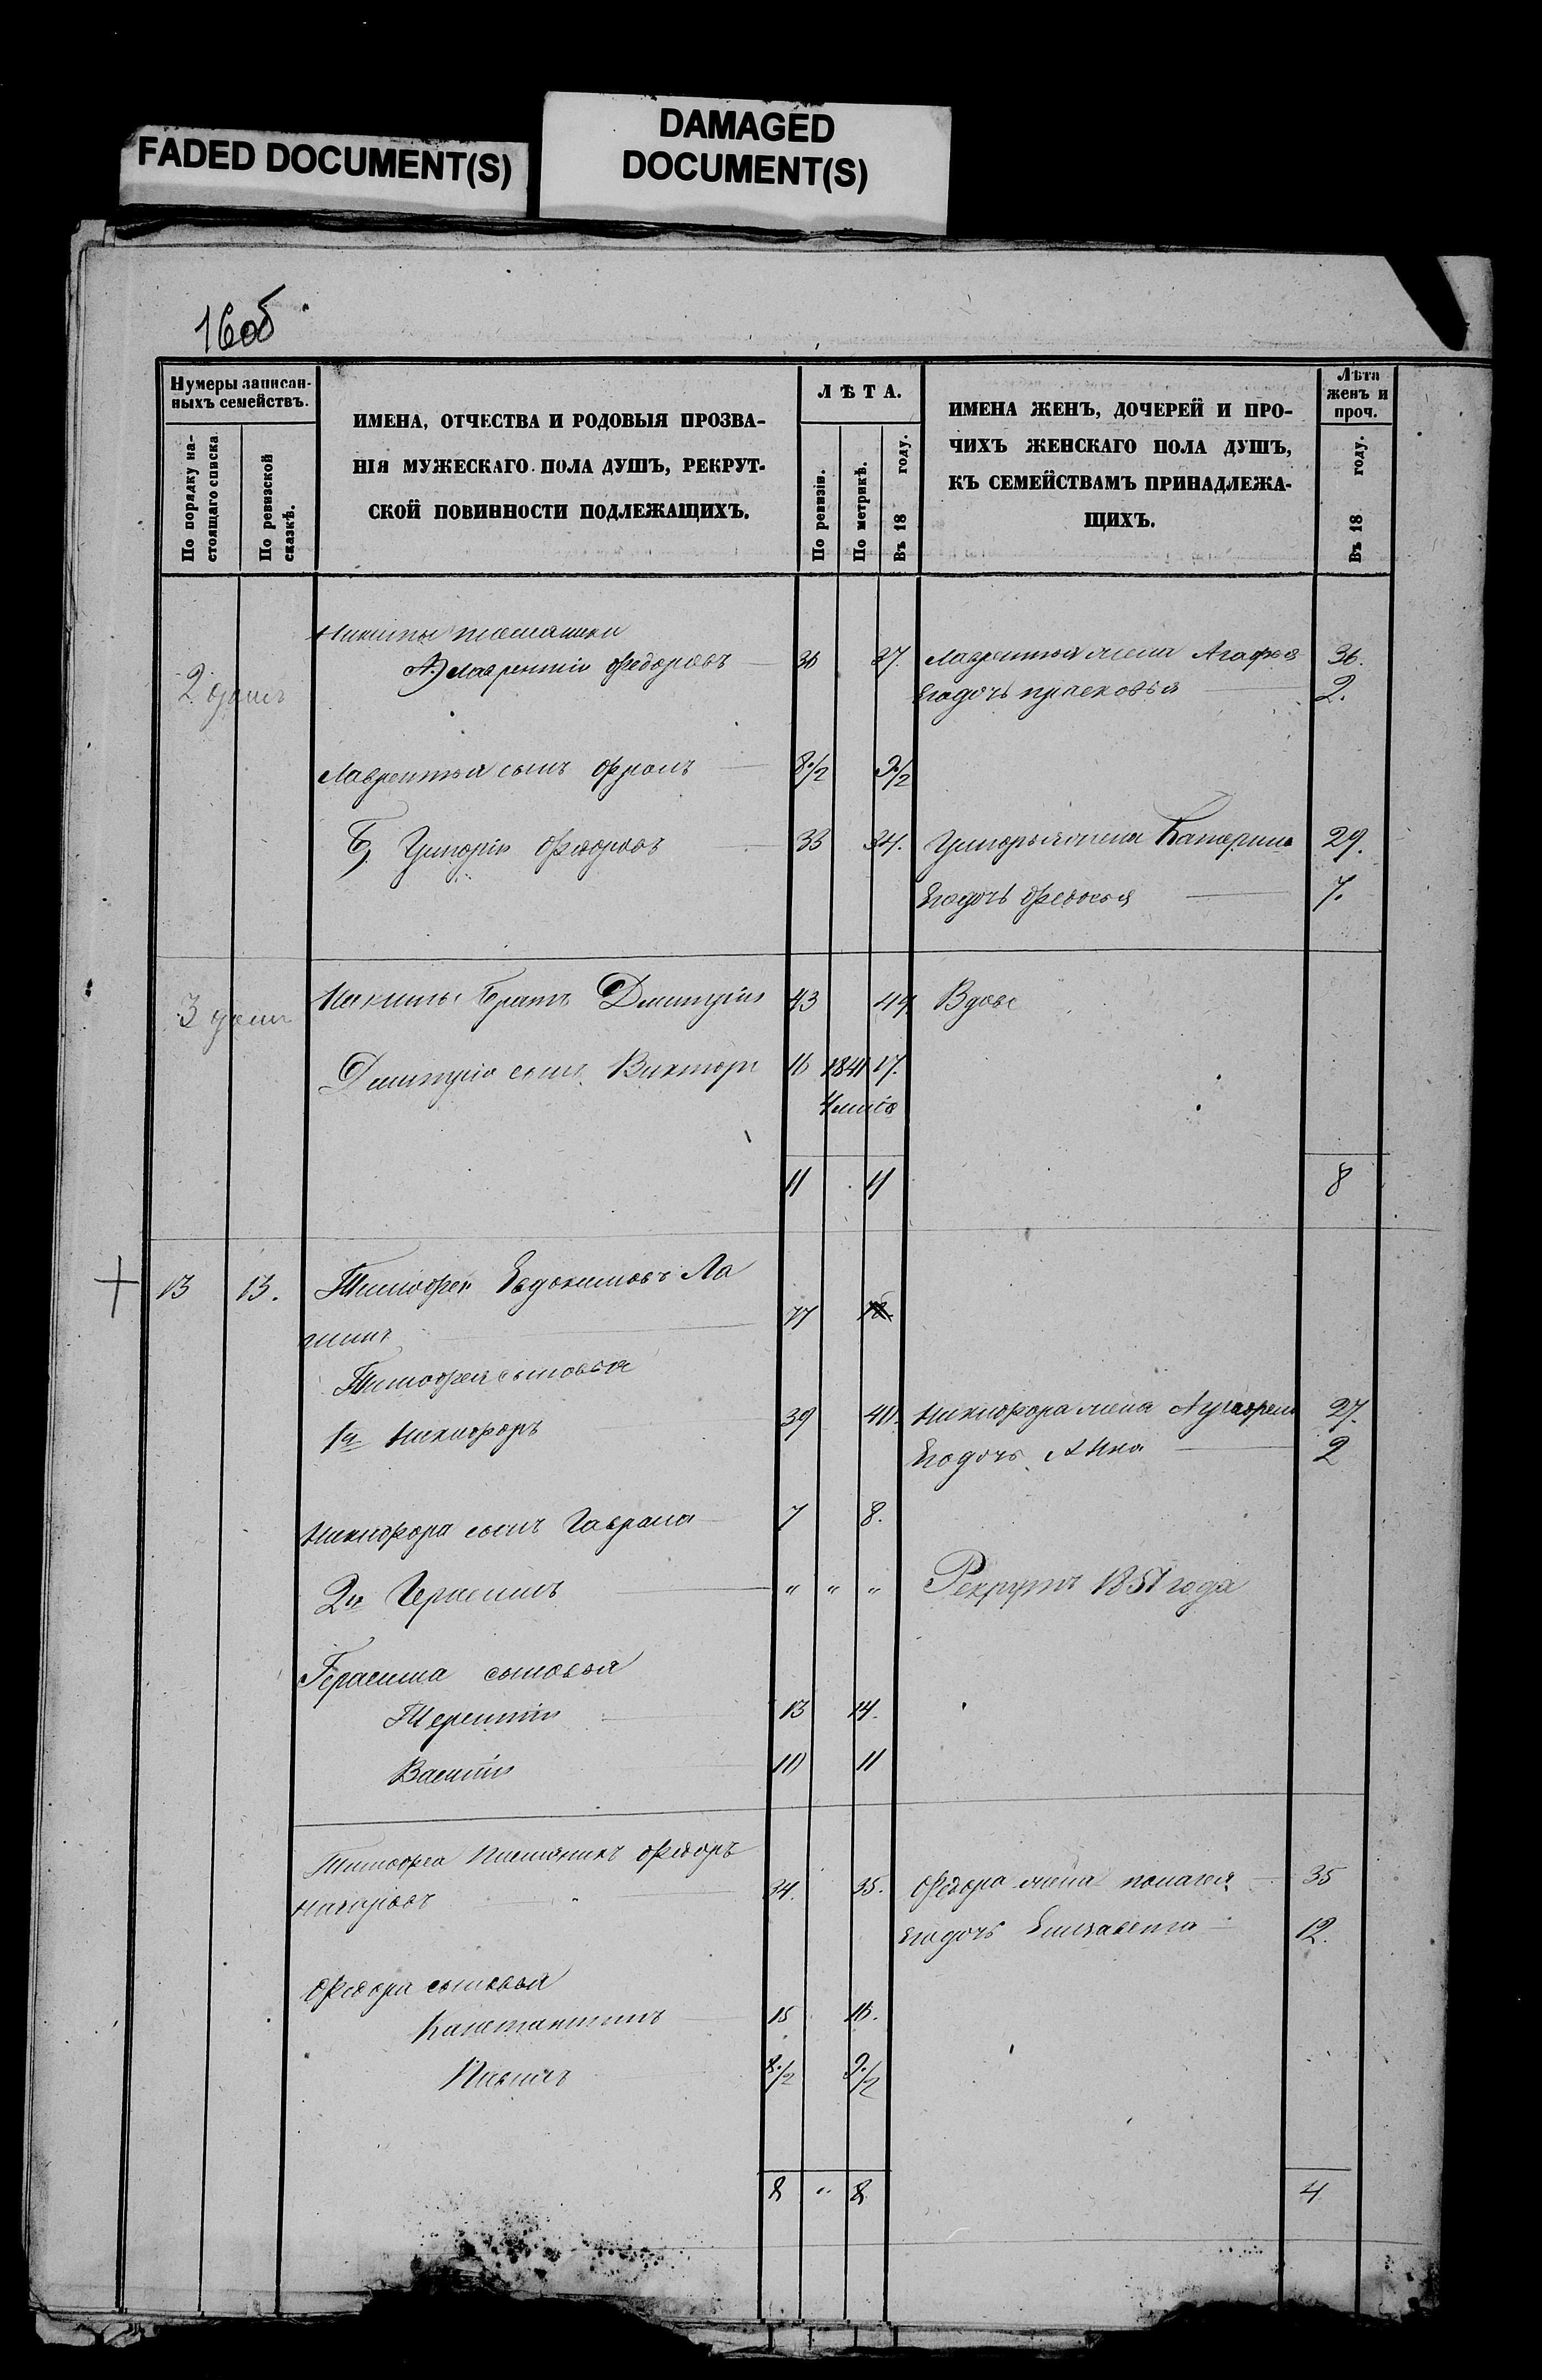 FADED DOCUMENT(S)
DAMAGED
DOCUMENT(S)
16об
Нумеры записан-
ныхъ семействъ.
По порядку на-
стоящаго списка.
По ревизской
сказкѣ.
ИМЕНА, ОТЧЕСТВА И РОДОВЫЯ ПРОЗВА-
НІЯ МУЖЕСКАГО ПОЛА ДУШЪ, РЕКРУТ-
СКОЙ ПОВИННОСТИ ПОДЛЕЖАЩИХЪ.
ЛѢТА.
По ревизіи.
По метрикѣ.
Въ 18 году.
ИМЕНА ЖЕНЪ, ДОЧЕРЕЙ И ПРО-
ЧИХЪ ЖЕНСКАГО ПОЛА ДУШЪ,
КЪ СЕМЕЙСТВАМЪ ПРИНАДЛЕЖА-
ЩИХЪ.
Лѣта
женъ и
проч.
Въ 18 году.
Никиты
А) Лаврентій Федоровъ 36 37. Лаврентья жена Агафья 36.
2
Его дочь Прасковья 2.
Лаврентья сынъ Фролъ 8./2 9./2
Б) Григорій Федоровъ 33 34. Григорья жена Катерина 29.
Его дочь Федосья 7.
3 Никиты братъ Дмитрій 43 44 Вдовъ
Дмитрія сынъ Викторъ 16 1841 17.
11 11 8
13 13. Тимофей Евдокимовъ Ла
77 78
Тимофея сыновья
1й Никифоръ 39 40. Никифора жена 27.
Его дочь Анна 2
Никифора сынъ Гаврила 7 8.
2й Герасимъ " " " Рекрутъ 1851 года
Герасима сыновья
Терентій 13 14.
Василій 10 11
Тимофея племянникъ Федоръ
34. 35. Федора жена Пелагея 35
Его дочь Елизавета 12.
Федора сыновья
Констант��нъ 15 16.
8./2 9./2
8 " 8 4